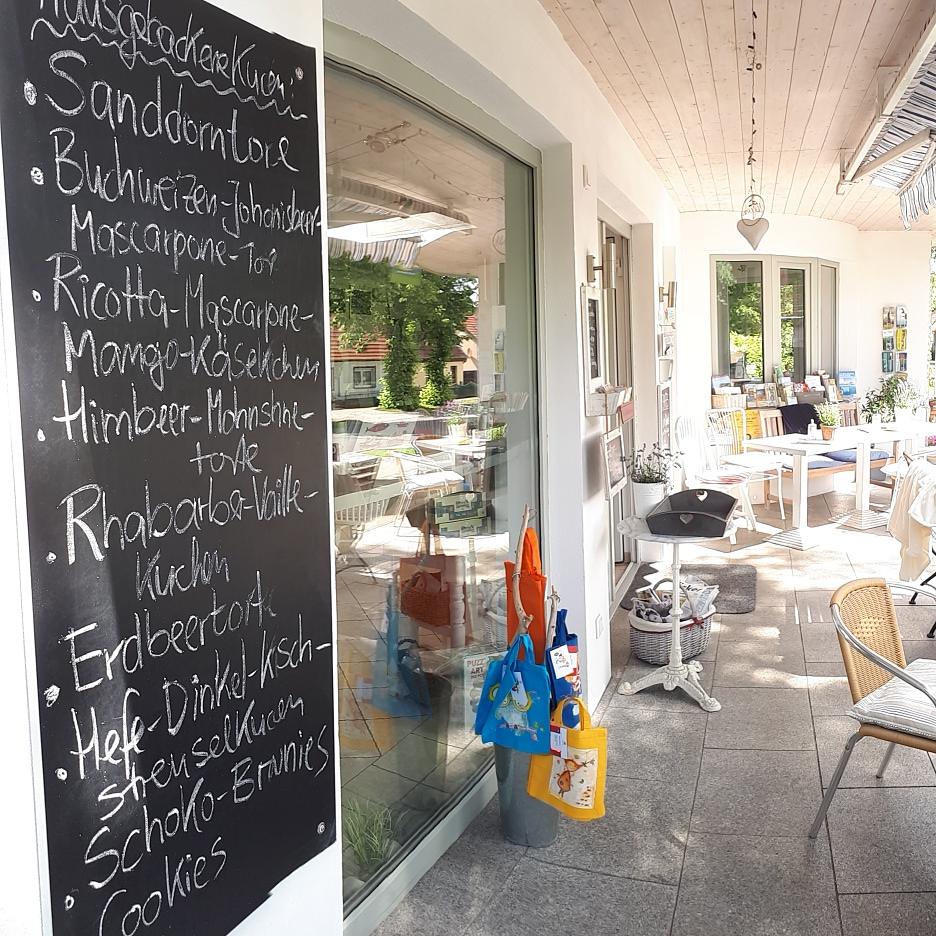 Hausgebackene Kuchen:
Sanddorntorte
Buchweizen-Johanisbeer-
Mascarpone-Tort
Ricotta-Mascarpone-
Mango-Käsekchen
Himbeer-Mohnshne-
torte
Rhabarber-Vaille-
Kuchen
Erdbeertorte
Hefe-Dinkel-Kisch-
streuselkucen
Schoko-Brownies
Cookies
PUZZ
ART